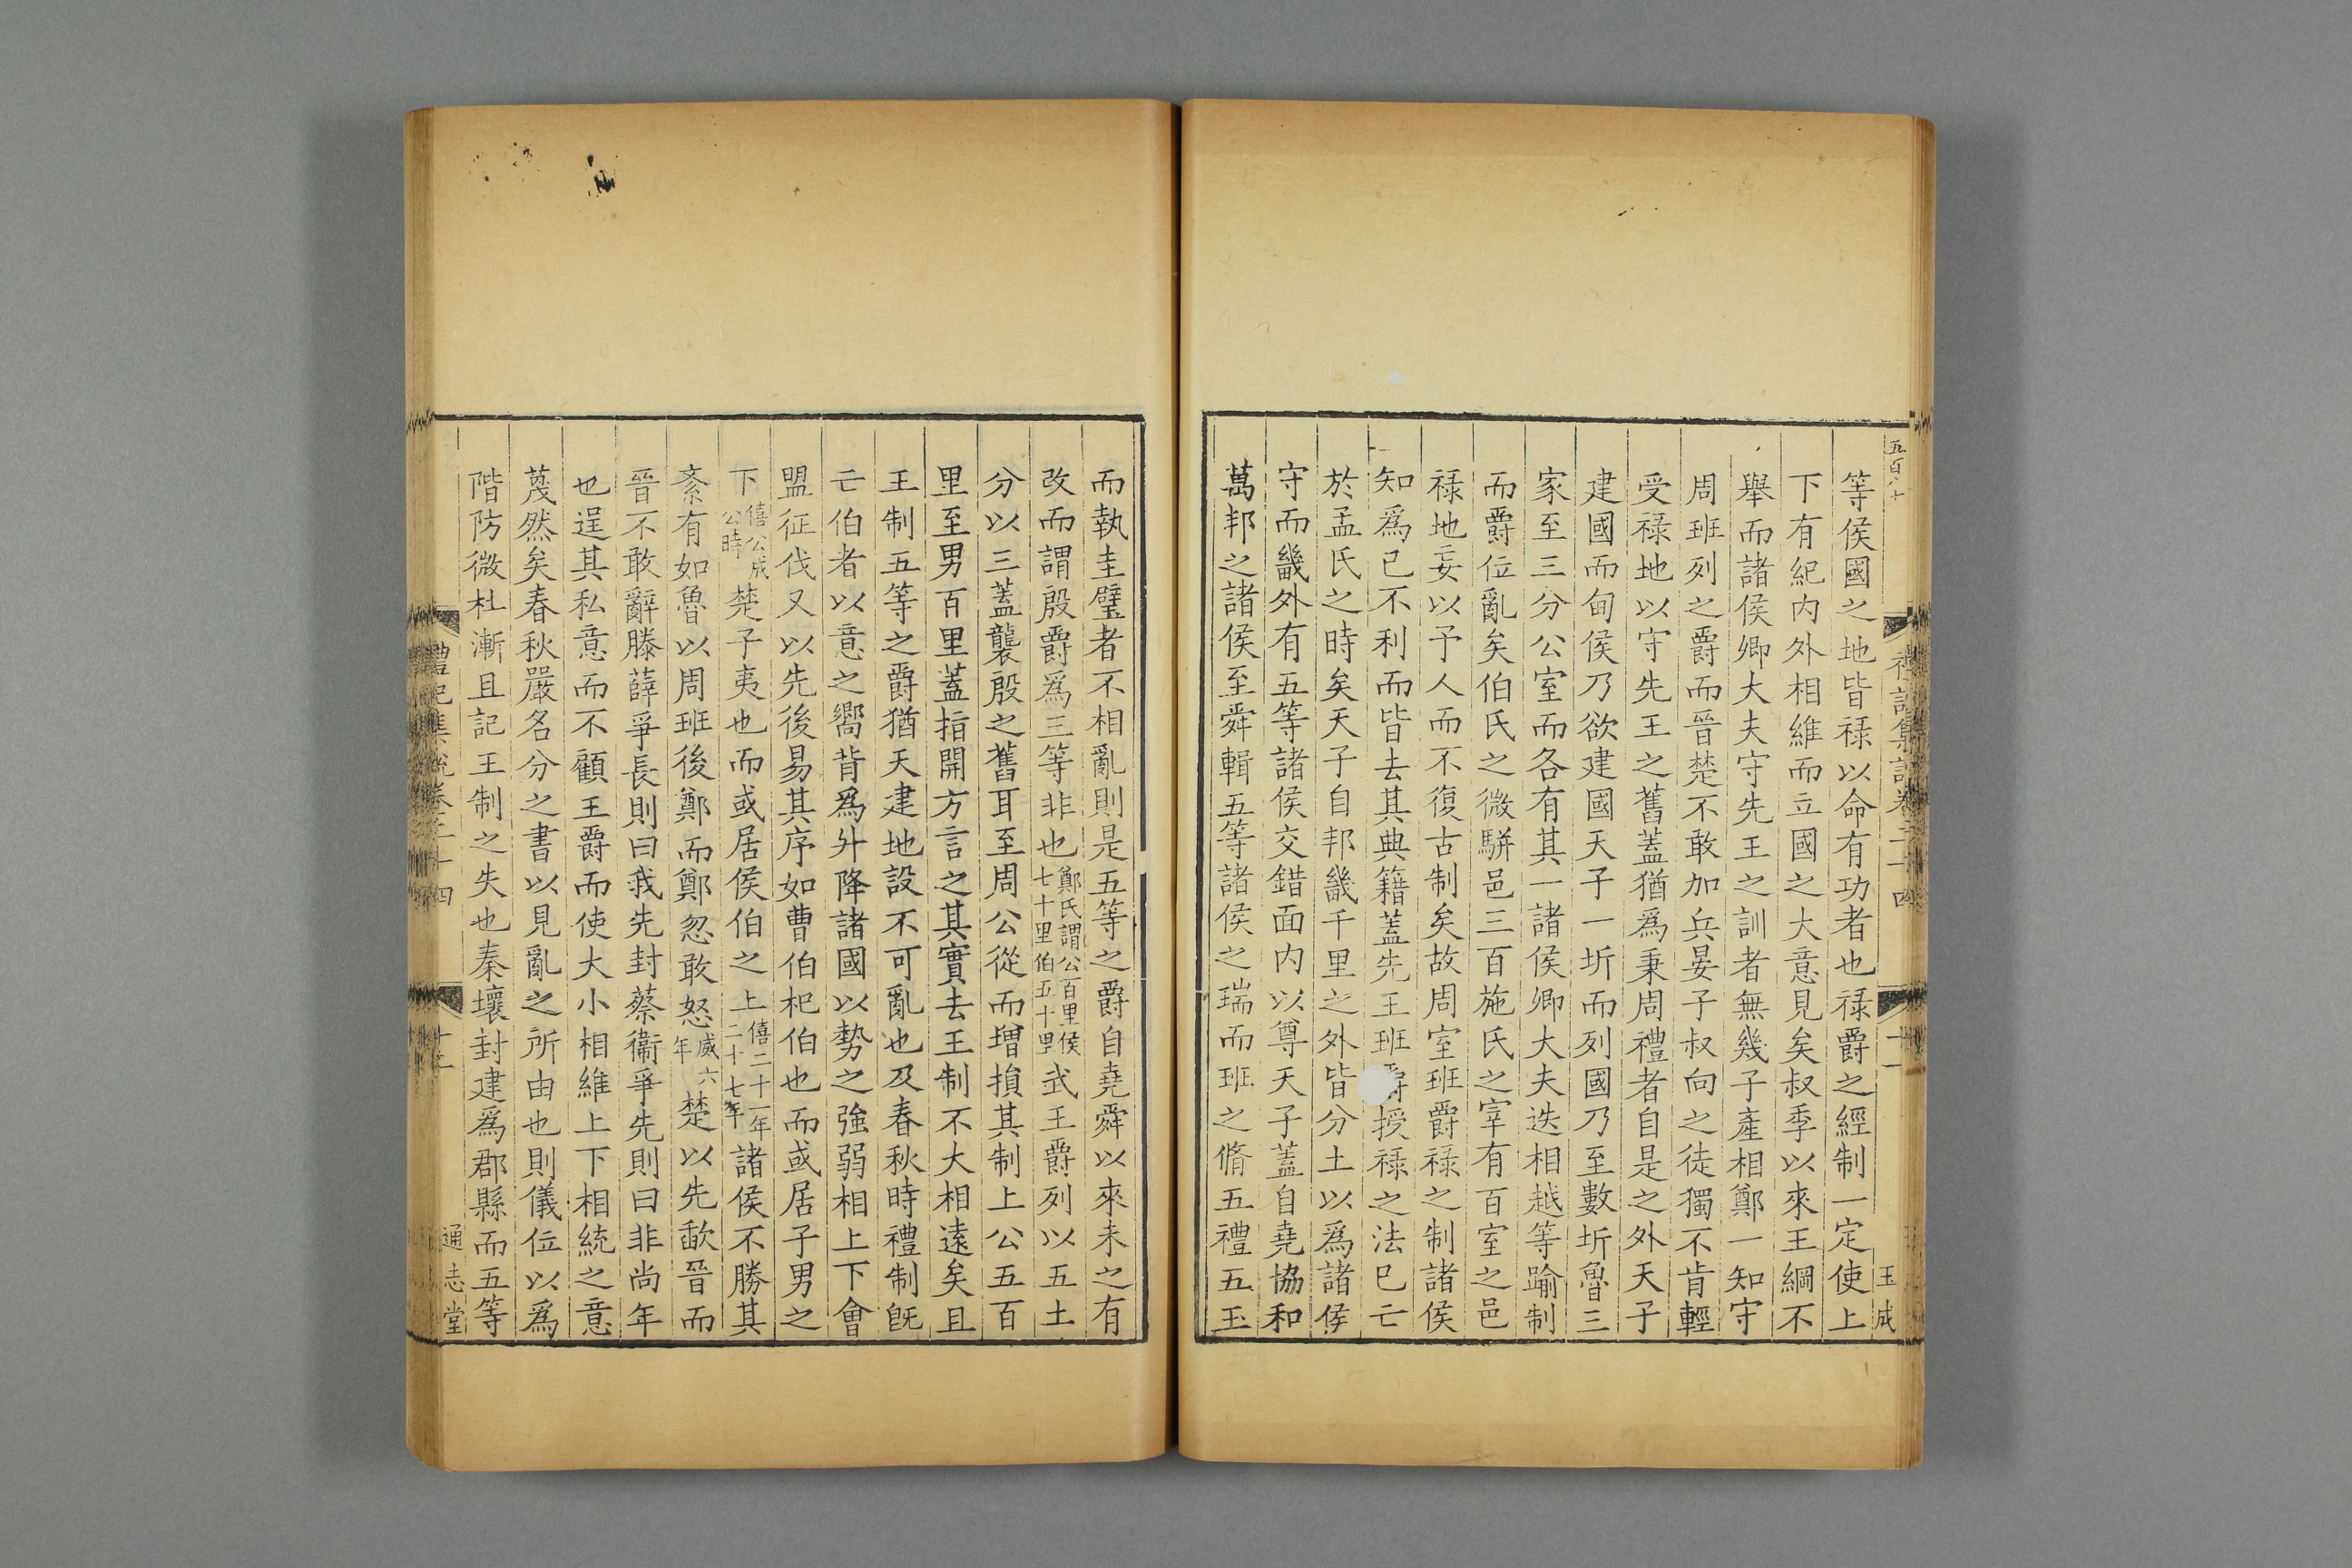 五百八十
禮記集說卷二十四
十一
玉成
等侯國之地皆祿以命有功者也祿爵之經制一定使上
下有紀內外相維而立國之大意見矣叔季以來王綱不
舉而諸侯卿大夫守先王之訓者無幾子產相鄭一知守
周班列之爵而晉楚不敢加兵晏子叔向之徒獨不肯輕
受祿地以守先王之舊蓋猶為秉周禮者自是之外天子
建國而甸侯乃欲建國天子一圻而列國乃至數圻魯三
家至三分公室而各有其一諸侯卿大夫迭相越等踰制
而爵位亂矣伯氏之微駢邑三百施氏之宰有百室之邑
祿地妄以予人而不復古制矣故周室班爵祿之制諸侯
知為已不利而皆去其典籍蓋先王班爵授祿之法已亡
於孟氏之時矣天子自邦畿千里之外皆分土以為諸侯
守而畿外有五等諸侯交錯面內以尊天子蓋自堯協和
萬邦之諸侯至舜輯五等諸侯之瑞而班之脩五禮五玉
而執圭璧者不相亂則是五等之爵自堯舜以來未之有
改而謂殷爵為三等非也鄭氏謂公百里侯七十里伯五十里武王爵列以五土
分以三蓋襲殷之舊耳至周公從而增損其制上公五百
里至男百里蓋指開方言之其實去王制不大相遠矣且
王制五等之爵猶天建地設不可亂也及春秋時禮制既
亡伯者以意之嚮背為升降諸國以勢之強弱相上下會
盟征伐又以先後易其序如曹伯杞伯也而或居子男之
下僖公成公時楚子夷也而或居侯伯之上僖二十一年二十七年諸侯不勝其
紊有如魯以周班後鄭而鄭忽敢怒威六年楚以先歃晉而
晉不敢辭滕薛爭長則曰我先封蔡衛爭先則曰非尚年
也逞其私意而不顧王爵而使大小相維上下相統之意
蔑然矣春秋嚴名分之書以見亂之所由也則儀位以為
階防微杜漸且記王制之失也秦壞封建為郡縣而五等
禮記集說卷二十四
通志堂